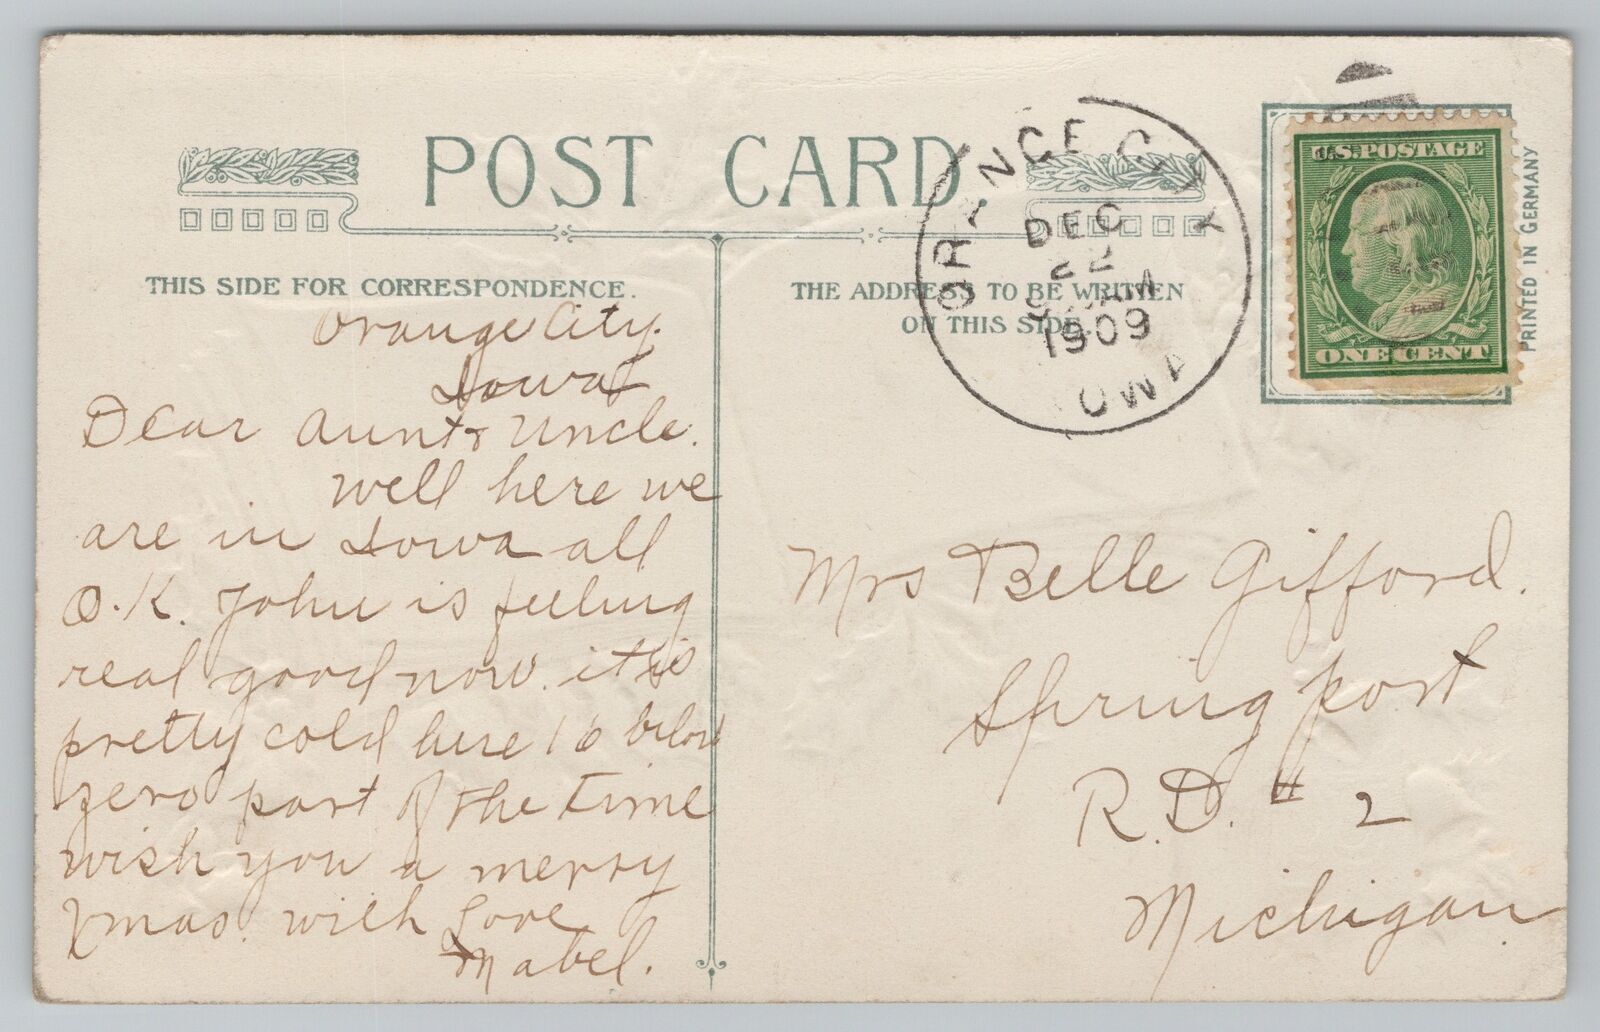 POST CARD.
THIS SIDE FOR CORRESPONDENCE.
Orange City.
Iowa
Dear Aunt & Uncle.
well here we
are in Iowa all
O.K. John is feeling
real good now. it is
pretty cold here 16 below
zero part of the time
wish you a merry
Xmas. with Love
Mabel.
THE ADDRESS TO BE WRITTEN
ON THIS SIDE.
ORANGE CITY
DEC
22
1909
IOWA
U.S. POSTAGE
ONE CENT
PRINTED IN GERMANY
Mrs Belle Gifford.
Springport
R.D. # 2
Michigan